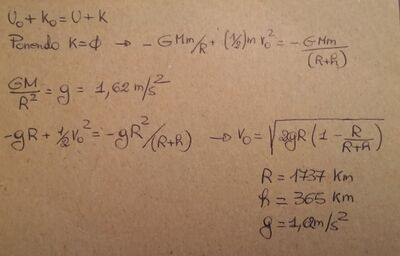 U₀ + K₀ = U + K
Ponendo K = ϕ → - GMm/R + (1/2)m v₀² = - GMm/(R+h)
GM/R² = g = 1,62 m/s²
-gR + 1/2 v₀² = -gR²/(R+h) → v₀ = √(2gR (1 - R/(R+h)))
R = 1737 Km
h = 365 Km
g = 1,62 m/s²